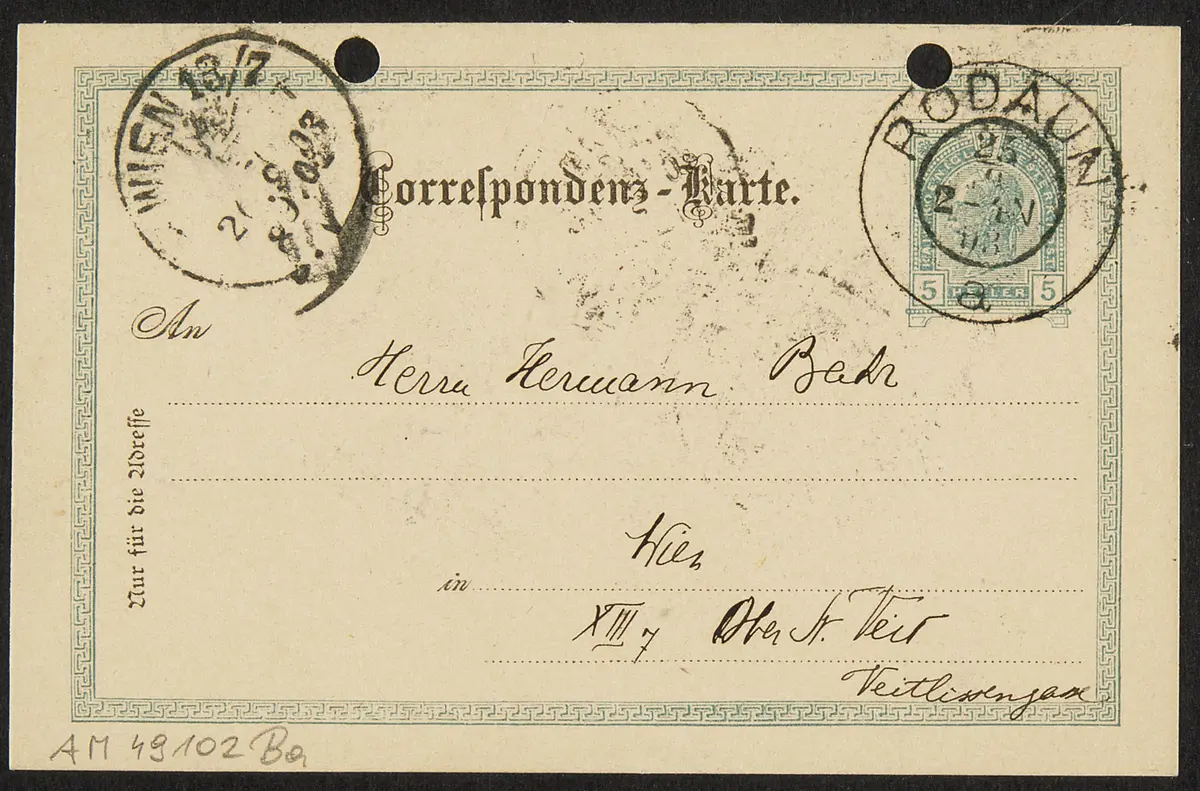 WIEN 13/7
Correspondenz-Karte.
RODAUN
25
03
a
5 HELLER 5
An
Herrn Hermann Bahr
Nur für die Adresse
Wien
in
XIII 7 Ober St. Veit
Veitlissengasse
AM 49102 Ba